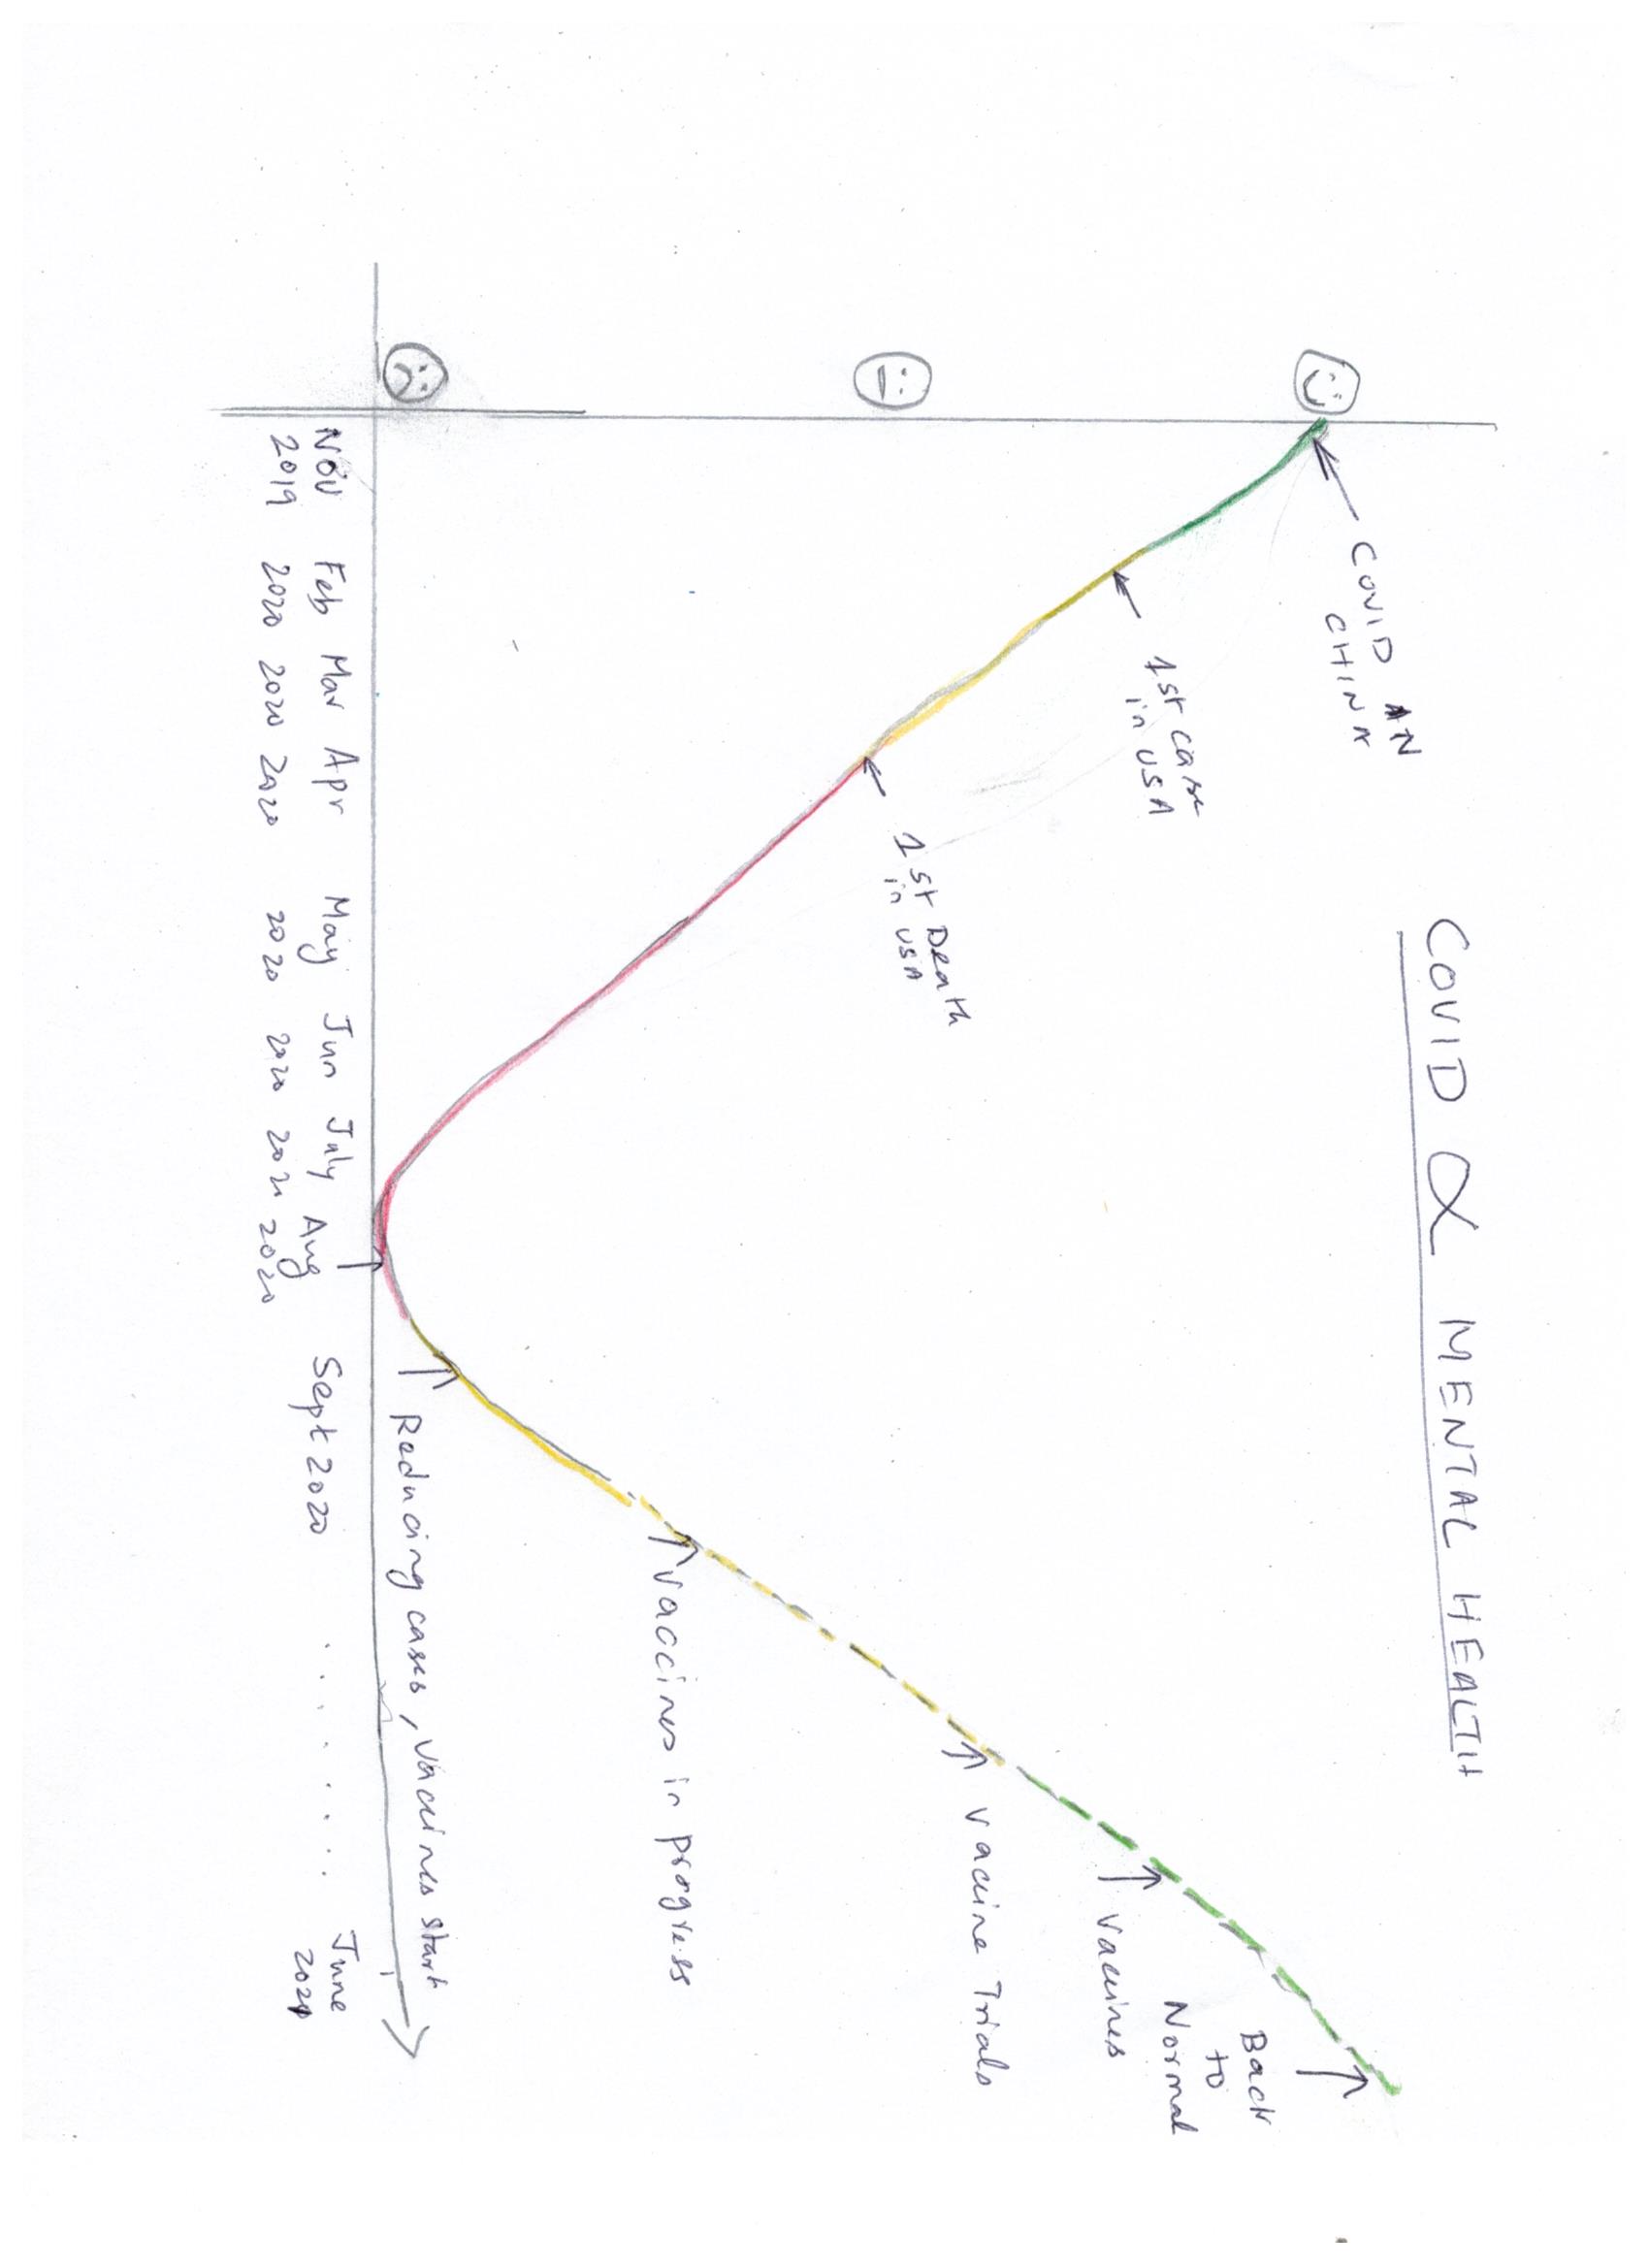 COVID ∝ MENTAL HEALTH
COVID IN
CHINA
1st case
in USA
1st Death
in USA
Back
to
Normal
Vaccines
Vaccine Trials
Vaccines in progress
Reducing cases, vaccines start
Nov Feb Mar Apr May Jun July Aug Sept 2020 . . . . . . June
2019 2020 2020 2020 2020 2020 2020